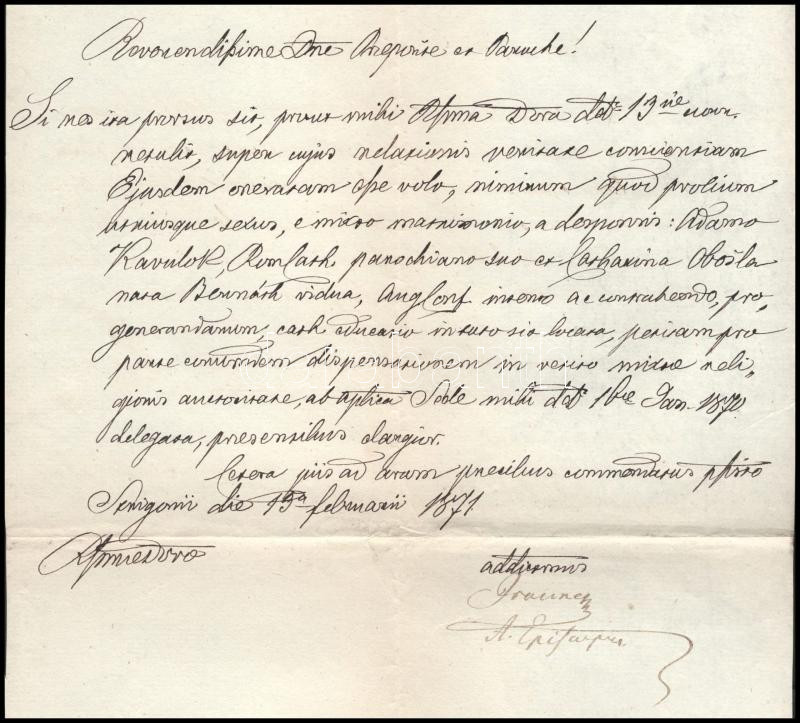 Reverendissime Dne Praeposite et Paroche!
Si res ita prorsus sit, prout mihi Rssma Dvra ddto 13ae curr.
retulit, super cujus relationis veritate conscientiam
Ejusdem oneratam esse volo, nimirum quod prolium
utriusque sexus, e mixto matrimonio, a desponsis: Adamo
Kavulok, Rom Cath. parochiano suo et Catharina Obošla
nata Bernáth vidua, Aug Conf. inito ac contrahendo, pro„
generandarum, cath. educatio in tuto sit locata, petitam pro
parte eorundem dispensationem in vetito mixtae reli„
gionis auctoritate, ab aplica Sede mihi ddto 1ae Jan. 1870.
delegata, praesentibus elargior.
Cetera piis ad aram precibus commendatus psisto
Strigonii die 13a februarii 1871.
Rssmae Dvrae
addictissimus
A. Episcopus